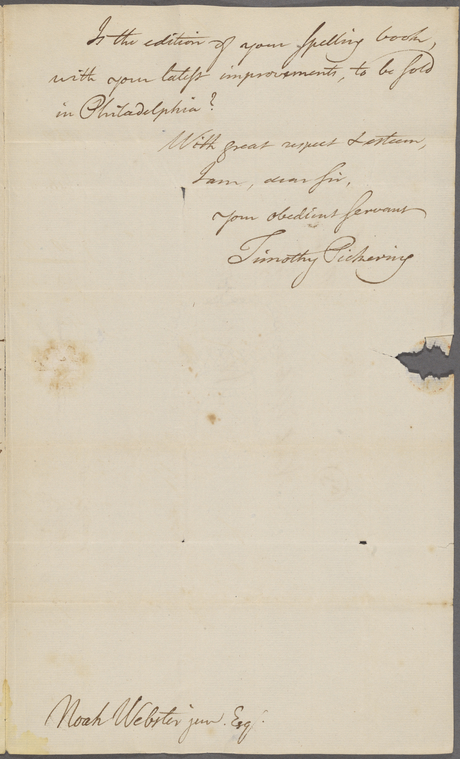 Is the edition of your spelling book,
with your latest improvements, to be sold
in Philadelphia?
With great respect & esteem,
I am, dear sir,
your obedient servant
Timothy Pickering
Noah Webster jun. Esqr.